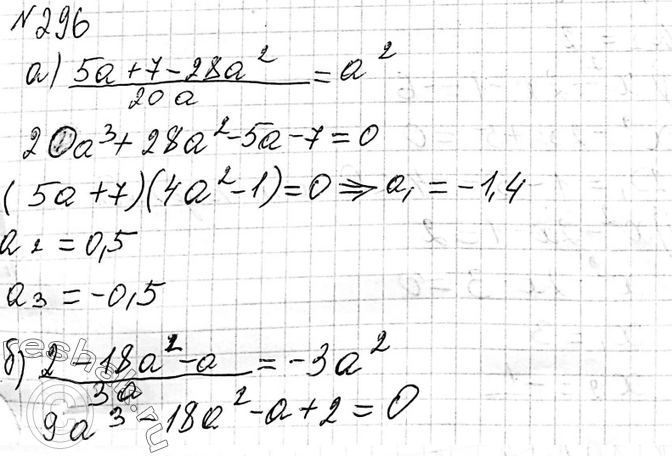 №296
а) (5a+7-28a²)/(20a) = a²
20a³+28a²-5a-7=0
(5a+7)(4a²-1)=0 ⇒ a₁=-1,4
a₂=0,5
a₃=-0,5
б) (2-18a²-a)/(3a) = -3a²
9a³-18a²-a+2=0